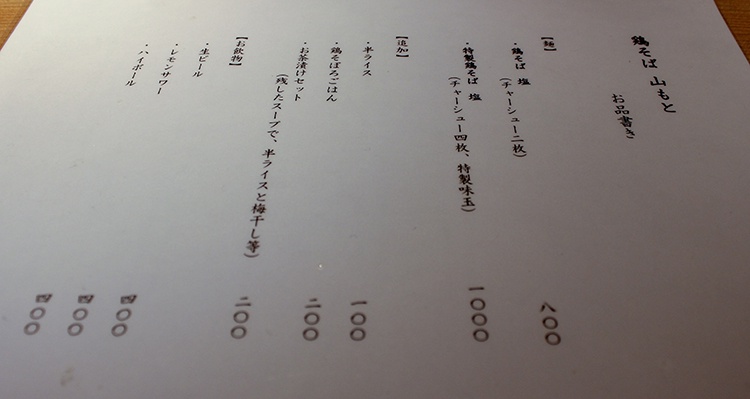 鶏そば 山もと
お品書き
【麺】
・鶏そば 塩 八〇〇
(チャーシュー二枚)
・特製鶏そば 塩 一〇〇〇
(チャーシュー四枚、特製味玉)
【追加】
・半ライス 一〇〇
・鶏そぼろごはん 二〇〇
・お茶漬けセット 二〇〇
(残したスープで、半ライスと梅干し等)
【お飲物】
・生ビール 四〇〇
・レモンサワー 四〇〇
・ハイボール 四〇〇